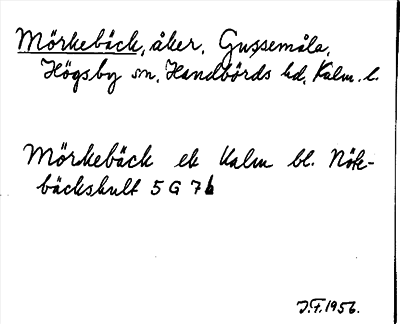 Mörkebäck, åker, Gussemåla,
Högsby sn, Handbörds hd, Kalm. l.
Mörkebäck ek Kalm bl. Nöte-
bäckshult 5 G 7 b
J.F. 1956.